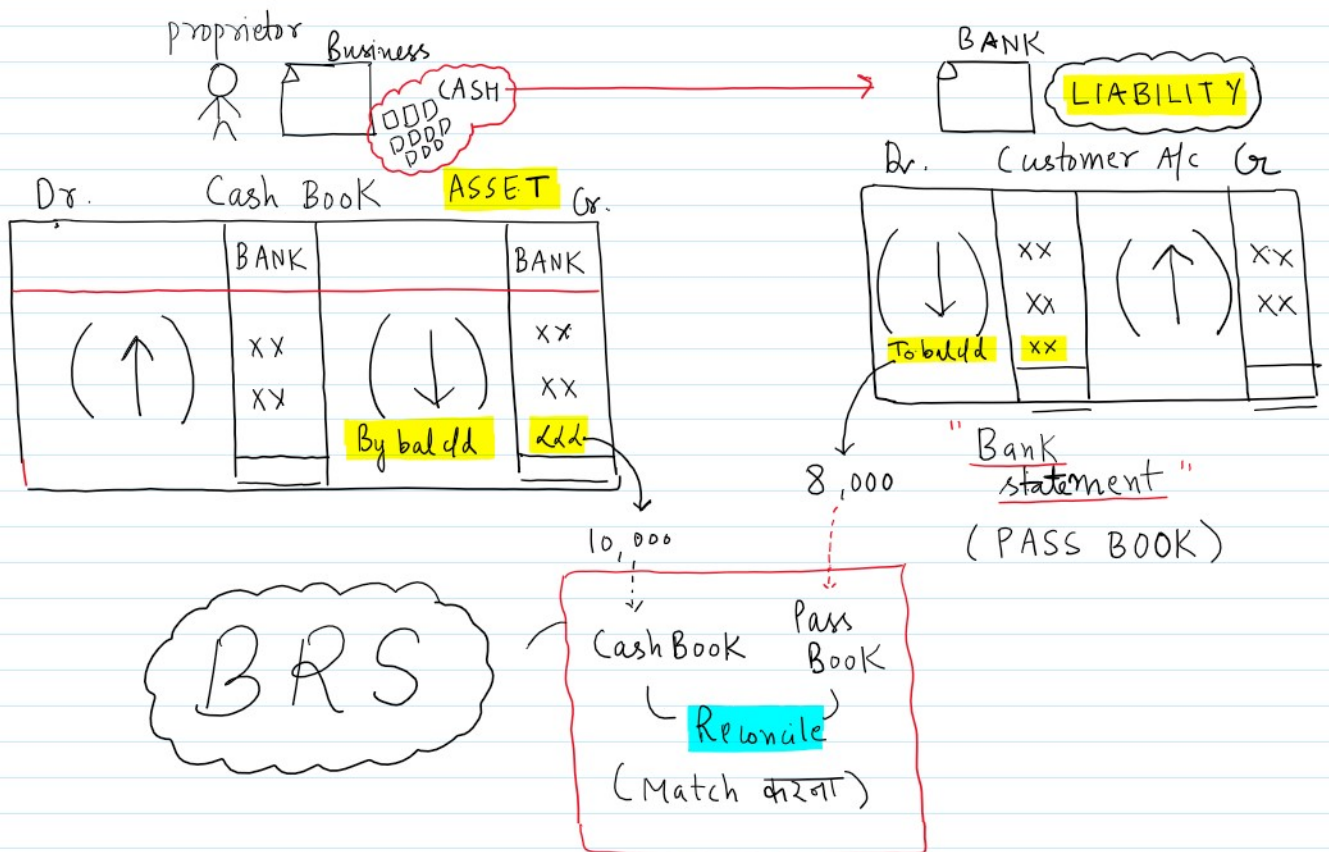 proprietor
Business
CASH
BANK
LIABILITY
Dr. Cash Book ASSET Cr.
BANK BANK
xx xx
xx xx
By bal c/d
Dr. Customer A/c Cr
xx xx
xx xx
To bal c/d xx
10,000
8,000
"Bank
statement"
(PASS BOOK)
BRS
Cash Book
Pass
Book
Reconcile
(Match करना)